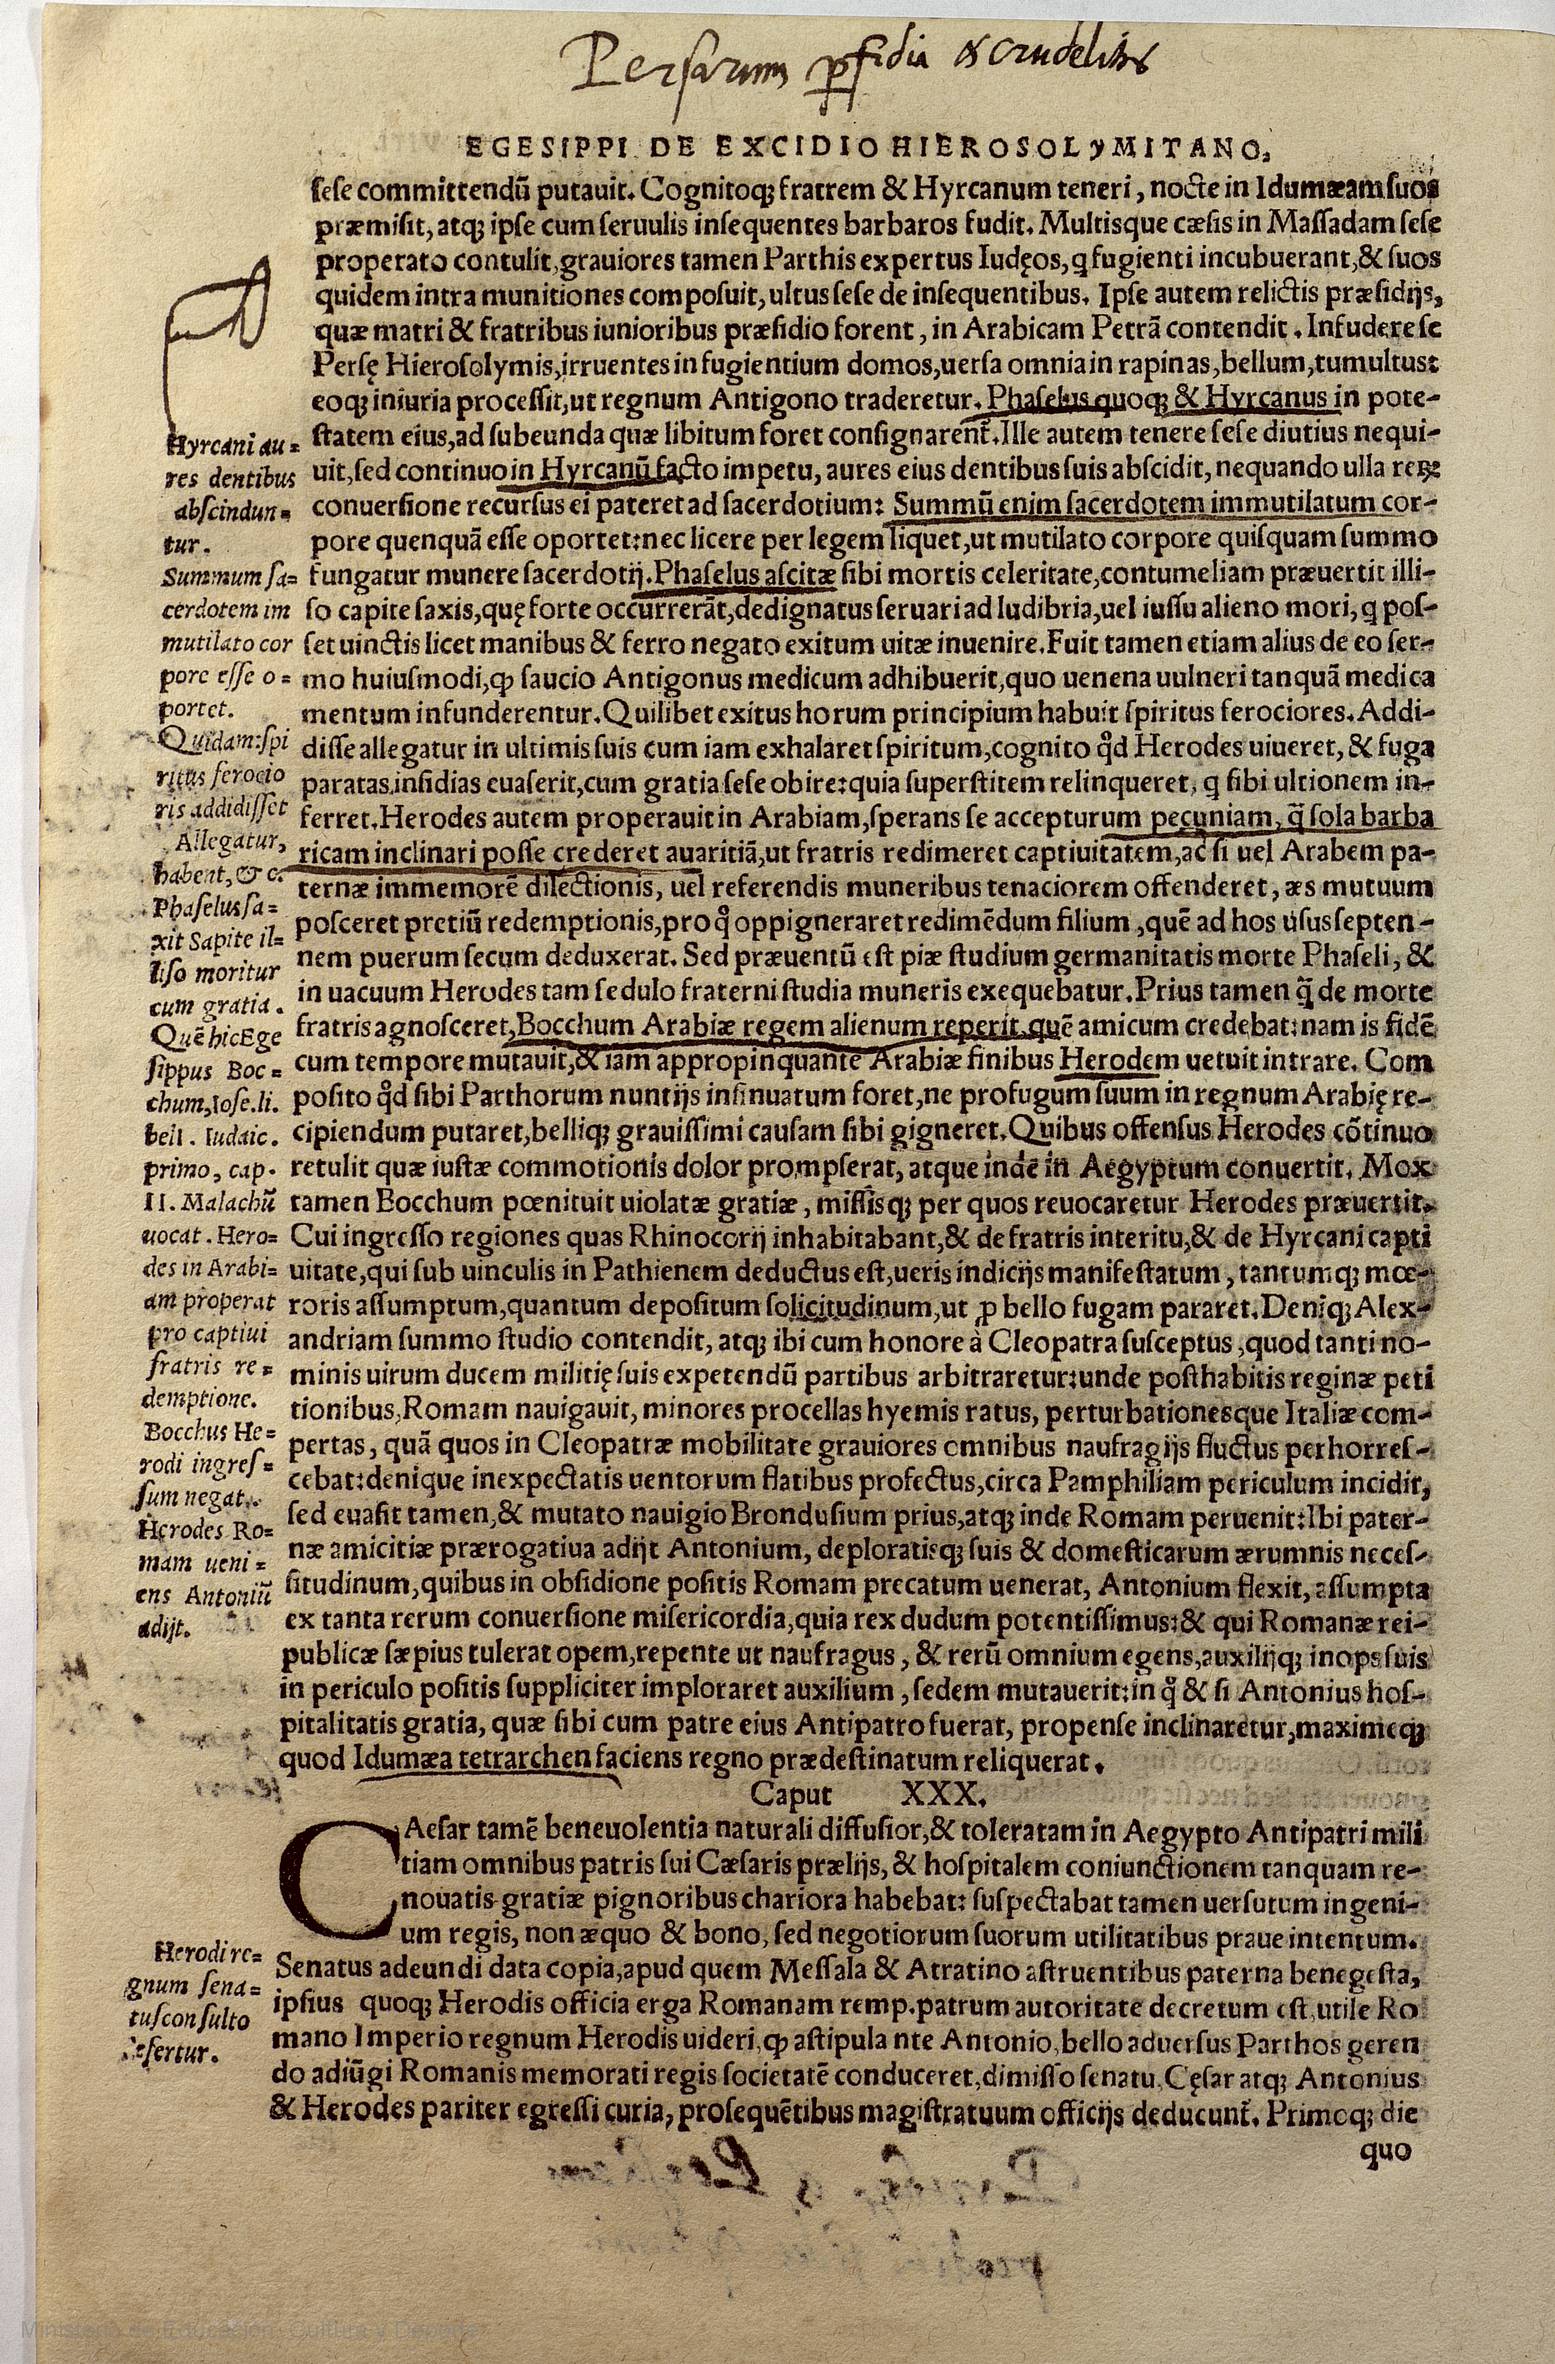 Persarum ꝑfidia & crudelitas
EGESIPPI DE EXCIDIO HIEROSOLYMITANO,
ſeſe committendū putauit. Cognitoq; fratrem & Hyrcanum teneri, nocte in Idumæam ſuos
præmiſit, atq; ipſe cum ſeruulis inſequentes barbaros fudit. Multisque cæſis in Maſſadam ſeſe
properato contulit, grauiores tamen Parthis expertus Iudęos, q̄ fugienti incubuerant, & ſuos
quidem intra munitiones compoſuit, ultus ſeſe de inſequentibus. Ipſe autem relictis præſidijs,
quæ matri & fratribus iunioribus præſidio forent, in Arabicam Petrā contendit. Infudere ſe
Perſę Hieroſolymis, irruentes in fugientium domos, uerſa omnia in rapinas, bellum, tumultus:
eoq; iniuria proceſſit, ut regnum Antigono traderetur. Phaſelus quoq; & Hyrcanus in pote-
ſtatem eius, ad ſubeunda quæ libitum foret conſignarent̄. Ille autem tenere ſeſe diutius nequi-
uit, ſed continuo in Hyrcanū facto impetu, aures eius dentibus ſuis abſcidit, nequando ulla reꝝ
conuerſione recurſus ei pateret ad ſacerdotium: Summū enim ſacerdotem immutilatum cor-
pore quenquā eſſe oportet: nec licere per legem liquet, ut mutilato corpore quiſquam ſummo
fungatur munere ſacerdotij. Phaſelus aſcitæ ſibi mortis celeritate, contumeliam præuertit illi-
ſo capite ſaxis, quę forte occurrerāt, dedignatus ſeruari ad ludibria, uel iuſſu alieno mori, q̄ poſ-
ſet uinctis licet manibus & ferro negato exitum uitæ inuenire. Fuit tamen etiam alius de eo ſer-
mo huiuſmodi, ꝙ ſaucio Antigonus medicum adhibuerit, quo uenena uulneri tanquā medica
mentum infunderentur. Quilibet exitus horum principium habuit ſpiritus ferociores. Addi-
diſſe allegatur in ultimis ſuis cum iam exhalaret ſpiritum, cognito qd̄ Herodes uiueret, & fuga
paratas inſidias euaſerit, cum gratia ſeſe obire: quia ſuperſtitem relinqueret, q̄ ſibi ultionem in-
ferret. Herodes autem properauit in Arabiam, ſperans ſe accepturum pecuniam, q̄ ſola barba
ricam inclinari poſſe crederet auaritiā, ut fratris redimeret captiuitatem, ac ſi uel Arabem pa-
ternæ immemorē dilectionis, uel referendis muneribus tenaciorem offenderet, æs mutuum
poſceret pretiū redemptionis, pro q̊ oppigneraret redimēdum filium, quē ad hos uſus ſepten-
nem puerum ſecum deduxerat. Sed præuentū eſt piæ ſtudium germanitatis morte Phaſeli, &
in uacuum Herodes tam ſedulo fraterni ſtudia muneris exequebatur. Prius tamen q̄ de morte
fratris agnoſceret, Bocchum Arabiæ regem alienum reperit, quē amicum credebat: nam is fidē
cum tempore mutauit, & iam appropinquante Arabiæ finibus Herodem uetuit intrare. Com
poſito qd̄ ſibi Parthorum nuntijs inſinuatum foret, ne profugum ſuum in regnum Arabię re-
cipiendum putaret, belliq; grauiſſimi cauſam ſibi gigneret. Quibus offenſus Herodes cōtinuo
retulit quæ iuſtæ commotionis dolor prompſerat, atque inde in Aegyptum conuertit. Mox
tamen Bocchum pœnituit uiolatæ gratiæ, miſſisq; per quos reuocaretur Herodes præuertit.
Cui ingreſſo regiones quas Rhinocorij inhabitabant, & de fratris interitu, & de Hyrcani capti
uitate, qui ſub uinculis in Pathienem deductus eſt, ueris indicijs manifeſtatum, tantumq; mœ-
roris aſſumptum, quantum depoſitum ſolicitudinum, ut ꝓ bello fugam pararet. Deniq; Alex-
andriam ſummo ſtudio contendit, atq; ibi cum honore à Cleopatra ſuſceptus, quod tanti no-
minis uirum ducem militię ſuis expetendū partibus arbitraretur: unde poſthabitis reginæ peti
tionibus, Romam nauigauit, minores procellas hyemis ratus, perturbationesque Italiæ com-
pertas, quā quos in Cleopatræ mobilitate grauiores omnibus naufragijs fluctus perhorreſ-
cebat: denique inexpectatis uentorum flatibus profectus, circa Pamphiliam periculum incidit,
ſed euaſit tamen, & mutato nauigio Brondusium prius, atq; inde Romam peruenit: Ibi pater-
næ amicitiæ prærogatiua adijt Antonium, deploratisq; ſuis & domeſticarum ærumnis neceſ-
ſitudinum, quibus in obſidione poſitis Romam precatum uenerat, Antonium flexit, aſſumpta
ex tanta rerum conuerſione miſericordia, quia rex dudum potentiſſimus: & qui Romanæ rei-
publicæ ſæpius tulerat opem, repente ut naufragus, & rerū omnium egens, auxilijq; inops ſuis
in periculo poſitis ſuppliciter imploraret auxilium, ſedem mutauerit: in q̊ & ſi Antonius hoſ-
pitalitatis gratia, quæ ſibi cum patre eius Antipatro fuerat, propenſe inclinaretur, maximeq;
quod Idumæa tetrarchen faciens regno prædeſtinatum reliquerat.
Caput XXX.
CAeſar tamē beneuolentia naturali diffuſior, & toleratam in Aegypto Antipatri mili
tiam omnibus patris ſui Cæſaris prælijs, & hoſpitalem coniunctionem tanquam re-
nouatis gratiæ pignoribus chariora habebat: ſuſpectabat tamen uerſutum ingeni-
um regis, non æquo & bono, ſed negotiorum ſuorum utilitatibus praue intentum.
Senatus adeundi data copia, apud quem Meſſala & Atratino aſtruentibus paterna benegeſta,
ipſius quoq; Herodis officia erga Romanam remp. patrum autoritate decretum eſt, utile Ro
mano Imperio regnum Herodis uideri, ꝙ aſtipulante Antonio, bello aduerſus Parthos geren
do adiūgi Romanis memorati regis ſocietatē conduceret, dimiſſo ſenatu. Cęſar atq; Antonius
& Herodes pariter egreſſi curia, proſequētibus magiſtratuum officijs deducunt̄. Primoq; die
quo
Hyrcani au=
res dentibus
abſcindun=
tur.
Summum ſa=
cerdotem im
mutilato cor
pore eſſe o=
portet.
Quidam: ſpi
ritus ferocio
ris addidiſſet
Allegatur,
habent, & c.
Phaſelus ſa=
xit Sapite il=
liſo moritur
cum gratia.
Quē hic Ege
ſippus Boc=
chum, Ioſe. li.
bell. Iudaic.
primo, cap.
II. Malachū
uocat. Hero=
des in Arabi=
am properat
pro captiui
fratris re=
demptione.
Bocchus He=
rodi ingreſ=
ſum negat.
Herodes Ro=
mam ueni=
ens Antoniū
adijt.
Herodi re=
gnum ſena=
tuſconſulto
defertur.
Ministerio de Educación, Cultura y Deporte